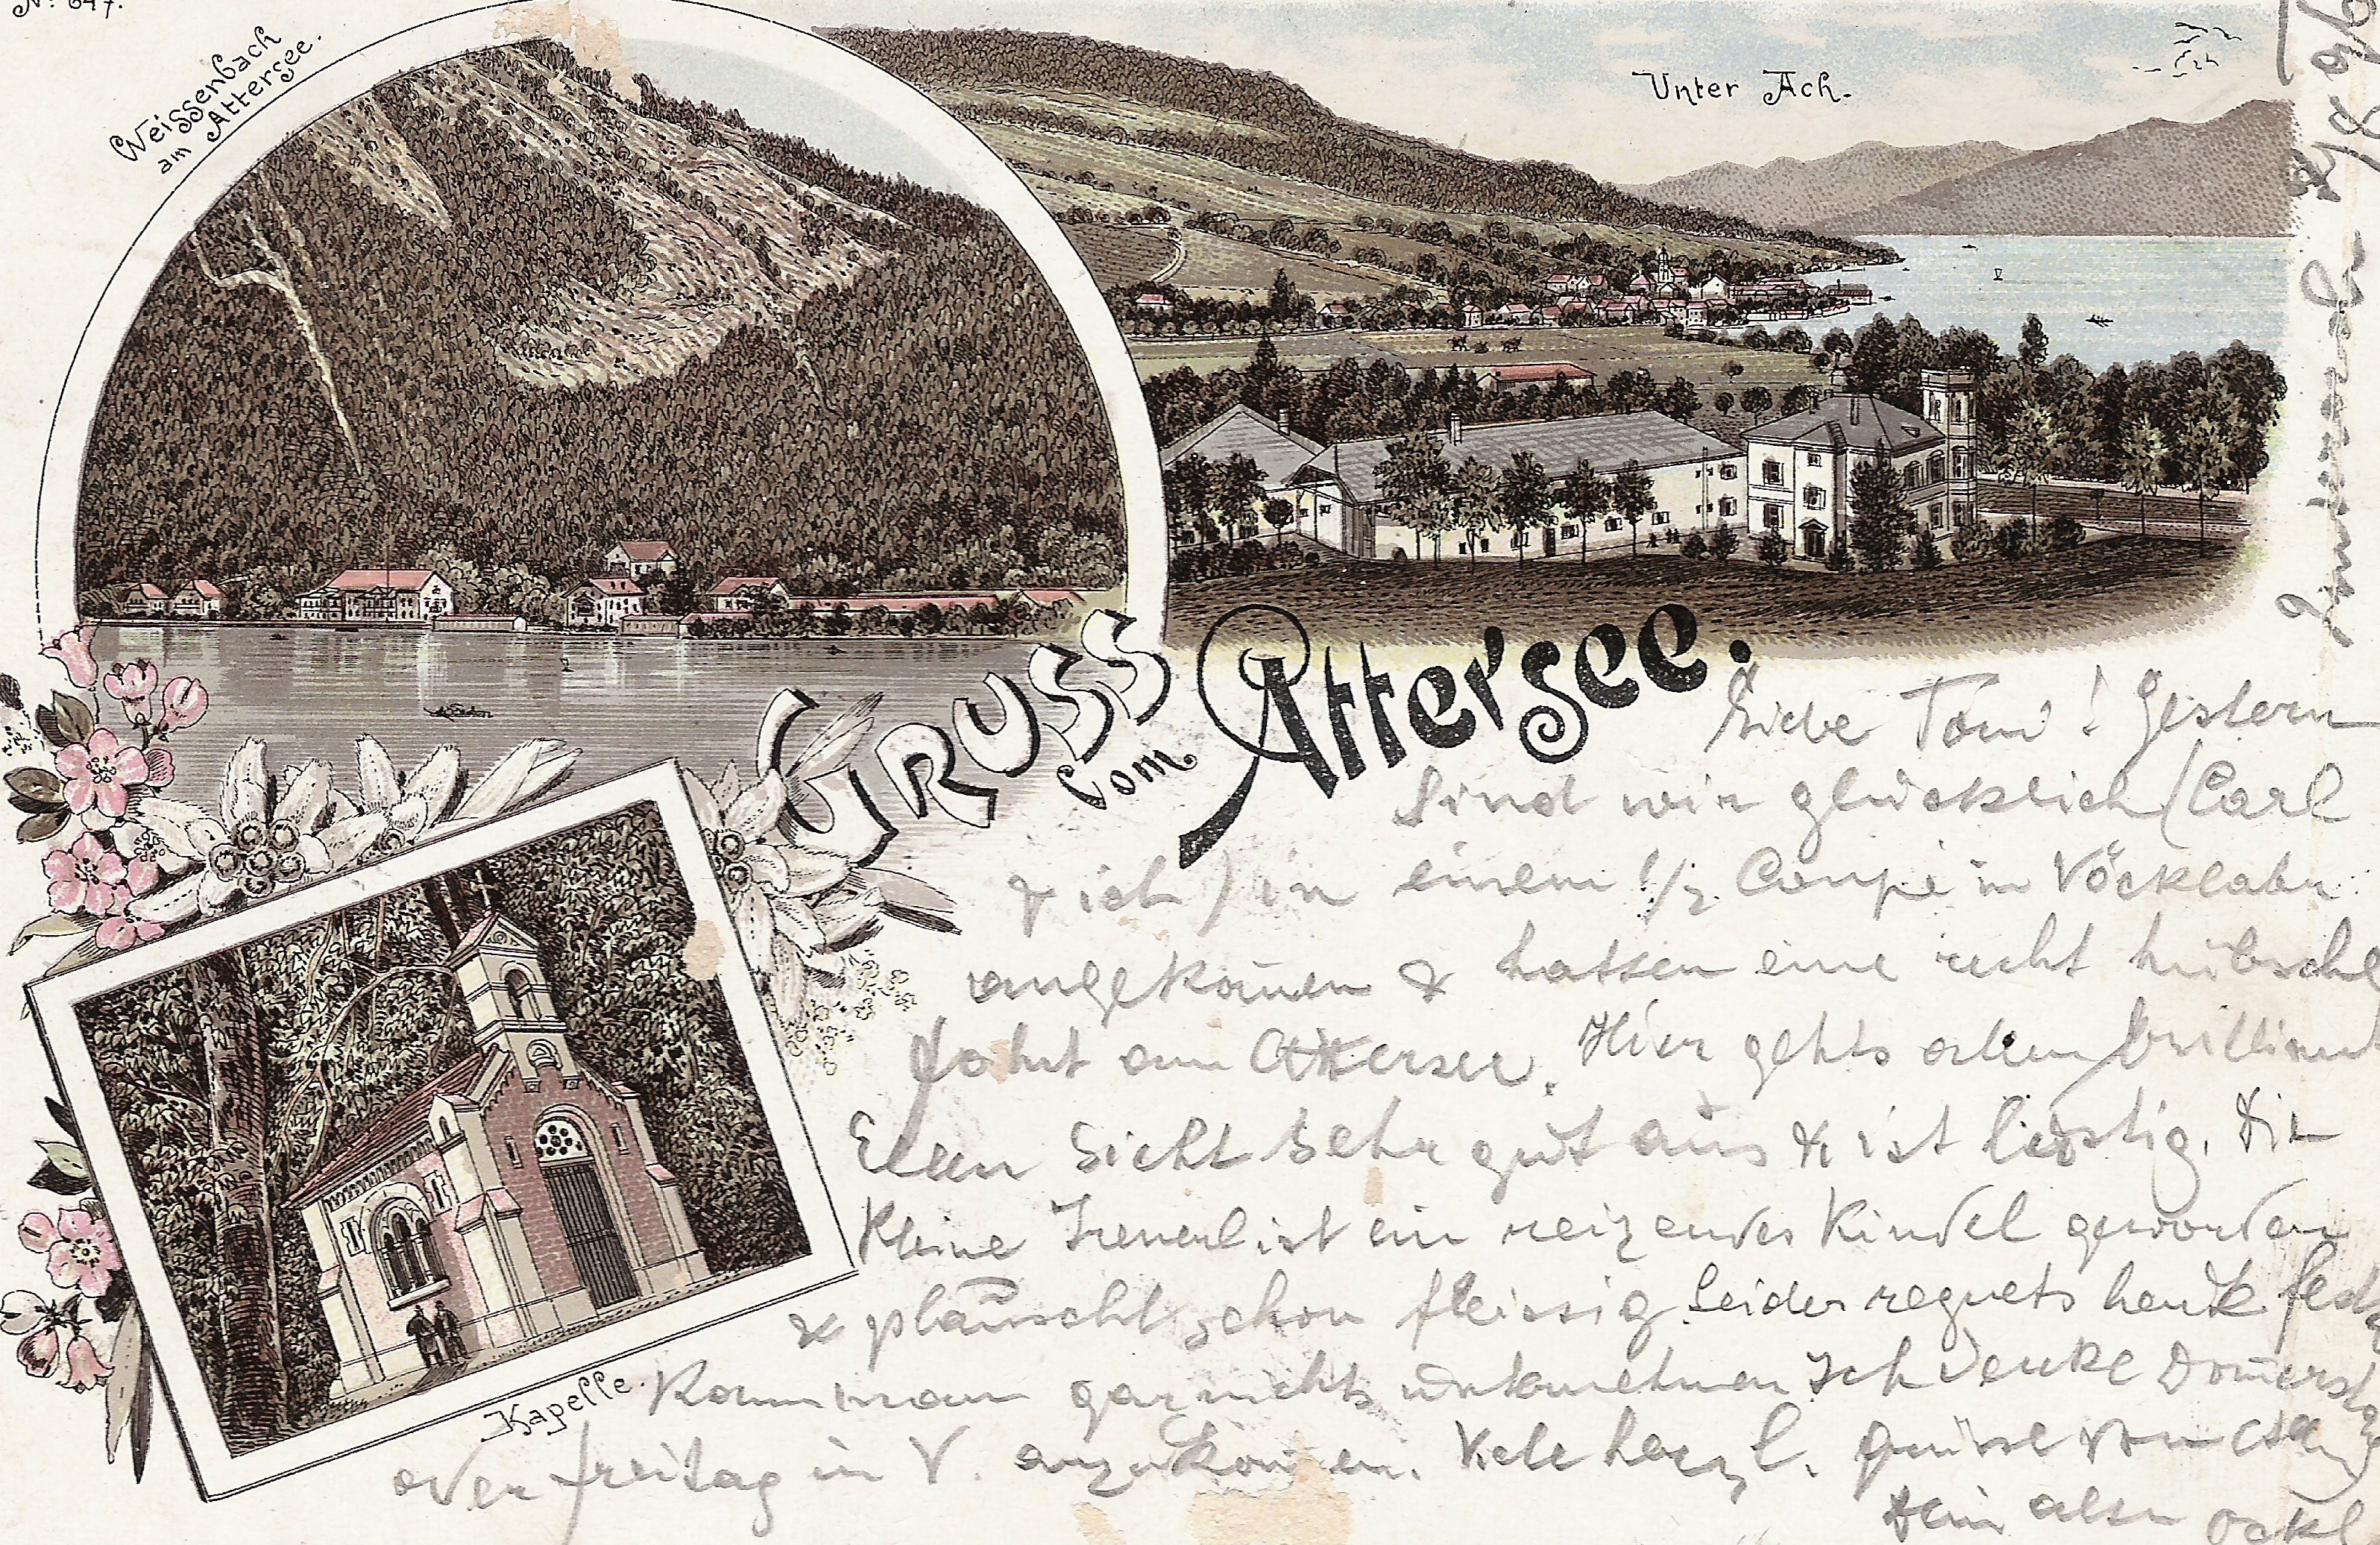 No. 647.
Weissenbach
am Attersee.
Unter Ach.
Gruss
vom Attersee.
Kapelle.
Liebe Toni! Gestern
sind wir glücklich (Carl
& ich) in einem ½ Coupé in Vöcklabr
angekom̄en & hatten eine recht hübsche
Fahrt am Attersee. Hier gehts allen brilliant
Ellen sieht sehr gut aus & ist lustig. Die
kleine Irenerl ist ein reizendes Kindel geworden
& plauscht schon fleissig. Leider regnets heute fest,
kann man gar nichts unternehmen Ich denke Don̄erstag
oder Freitag in V. anzukom̄en. Viele herzl. Grüsse von
Dein alter